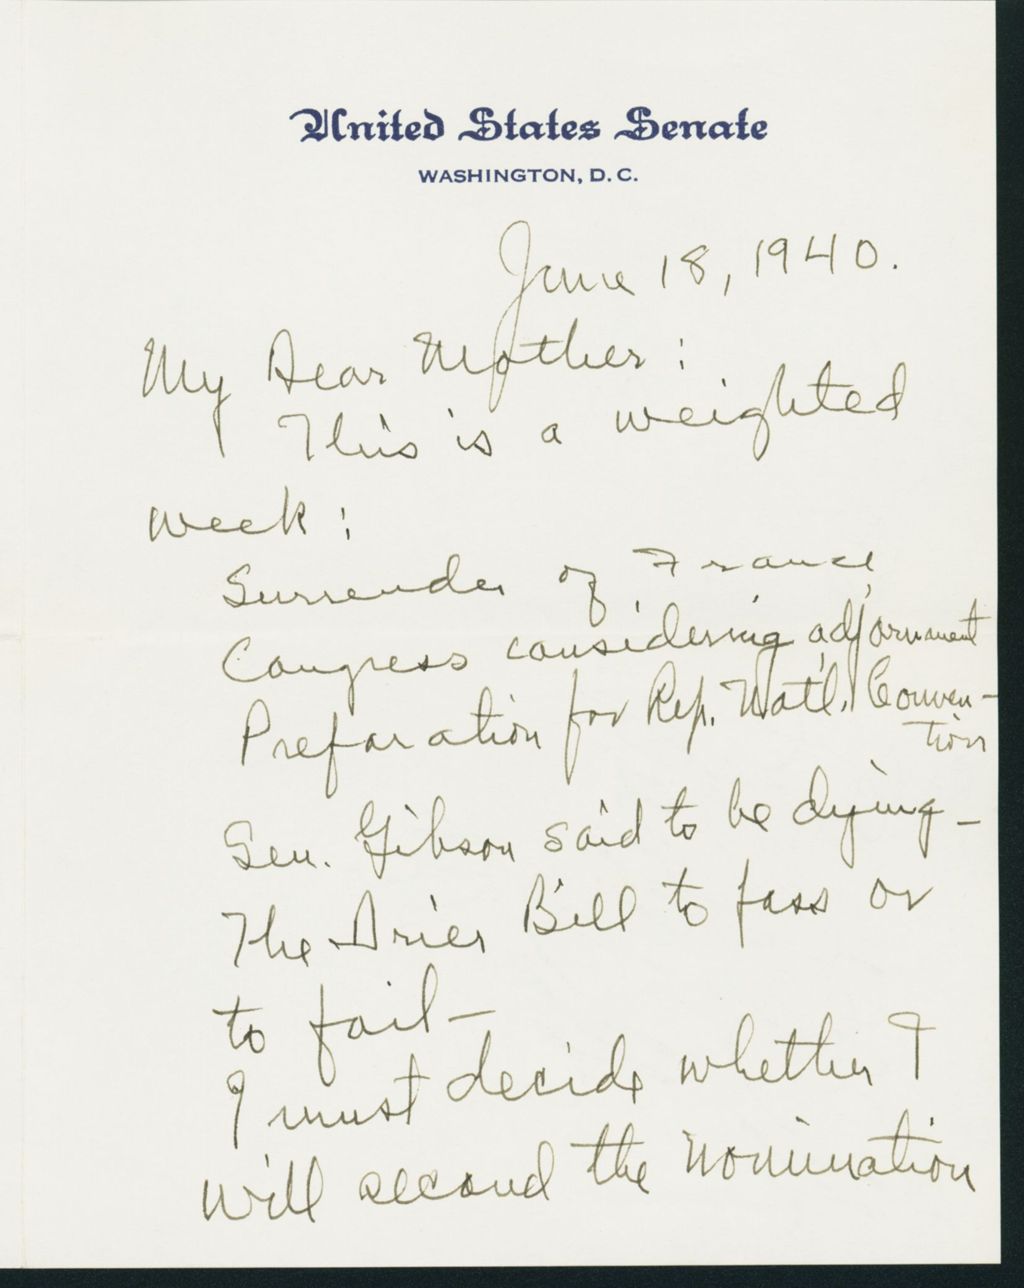 United States Senate
WASHINGTON, D. C.
June 18, 1940.
My Dear Mother:
This is a weighted
week:
Surrender of France,
Congress considering adjournment
Preparation for Rep. Nat'l. Conven-
tion
Sen. Gibson said to be dying—
The Bill to pass or
to fail—
I must decide whether I
will second the nomination